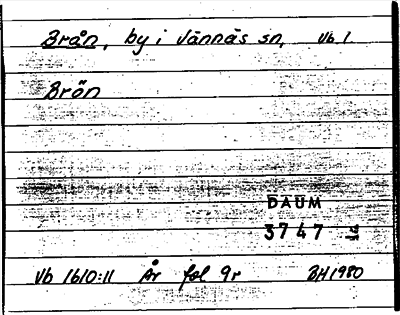 Brån, by i Vännäs sn, Vb l.
Brån
DAUM
3747
Vb 1610:11 År fol 9r BH 1980